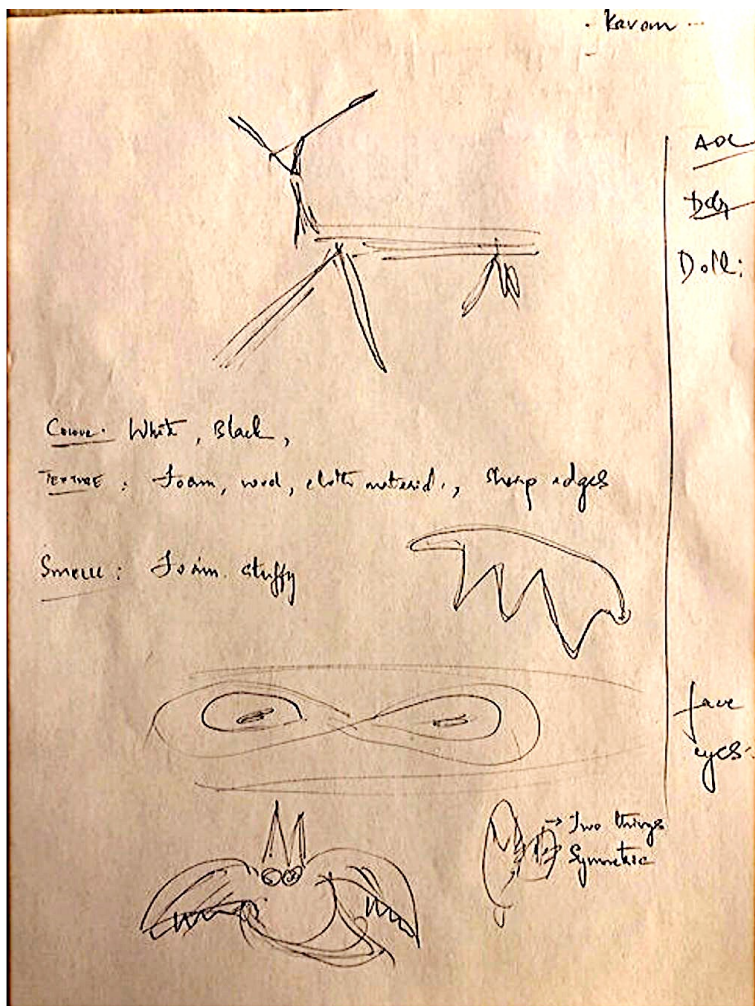 Karan
AOL
Doll:
Colour: White, Black,
TEXTURE: Foam, wood, cloth material, sharp edges
Smell: Foam. stuffy
face
eyes
→ Two things
→ Symmetric